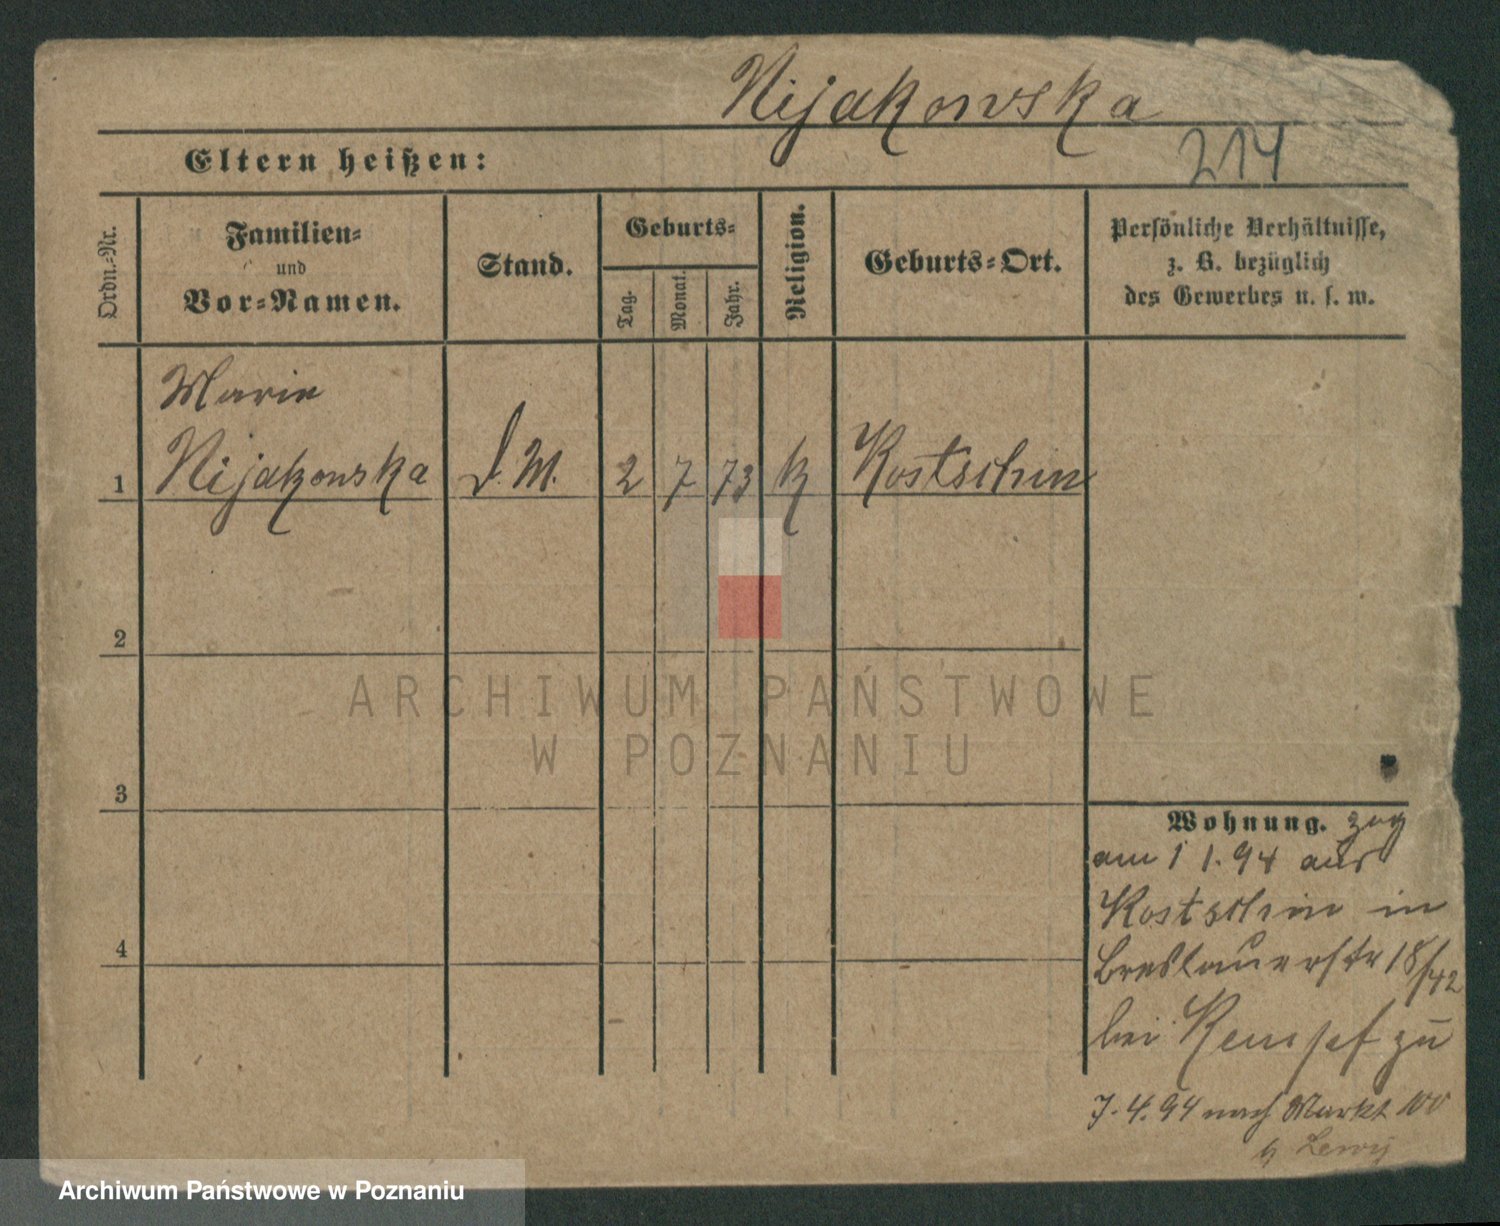 Nijakowska
214
Eltern heißen:
Ordn.-Nr.
Familien-
und
Vor-Namen.
Stand.
Geburts-
Tag.
Monat.
Jahr.
Religion.
Geburts-Ort.
Persönliche Verhältnisse,
z. B. bezüglich
des Gewerbes u. s. w.
Marie
1 Nijakowska d. M. 2 7 73 k Kostschin
2
3
4
Wohnung. zog
am 1 1. 94 aus
Kostschin in
Breslauerstr 18/42
bei Kempf zu
7. 4. 94 nach Markt 100
b Lewy
ARCHIWUM PAŃSTWOWE
W POZNANIU
Archiwum Państwowe w Poznaniu